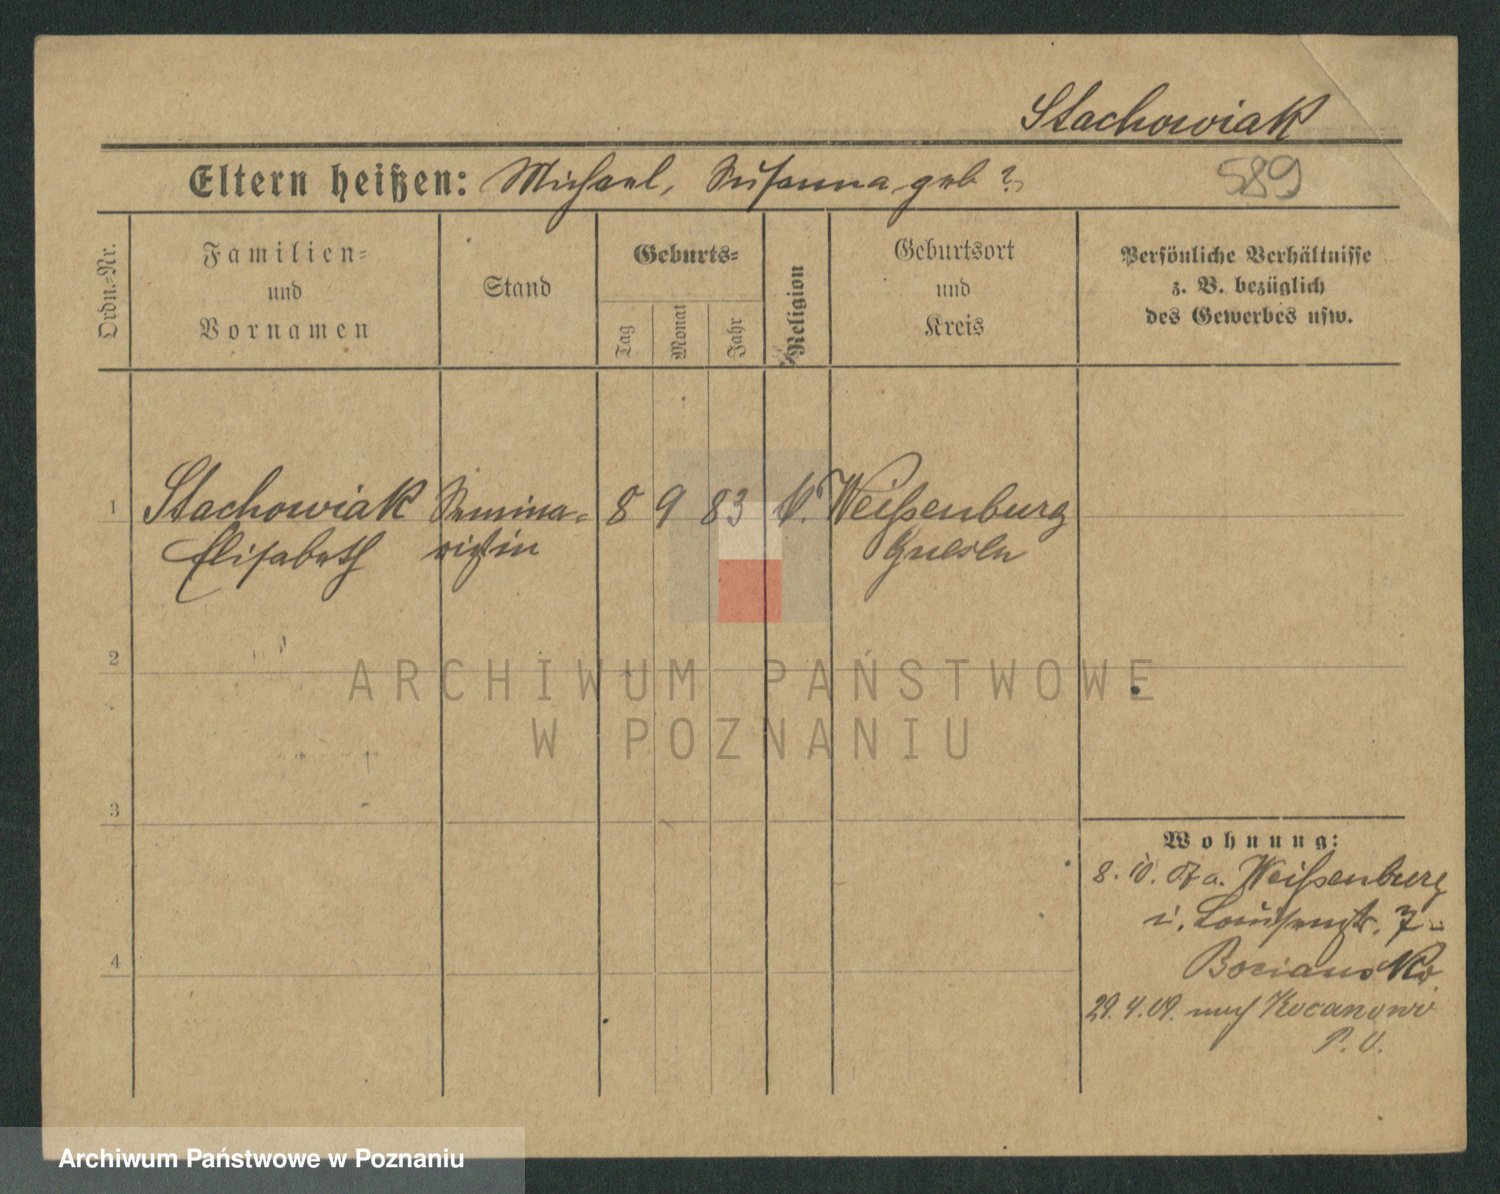 Stachowiak
589
Eltern heißen: Michael, Susanna geb ?
Ordn.-Nr.
Familien-
und
Vornamen
Stand
Geburts-
Tag
Monat
Jahr
Religion
Geburtsort
und
Kreis
Persönliche Verhältnisse
z. B. bezüglich
des Gewerbes usw.
1 Stachowiak Semina- 8 9 83 k. Weißenburg
Elisabeth ristin Gnesen
2
3
4
Wohnung:
8. 10. 07 a. Weißenburg
i. Louisenstr. 7
Bocianski
29. 4. 09. nach Kocanowo
P. O.
ARCHIWUM PAŃSTWOWE
W POZNANIU
Archiwum Państwowe w Poznaniu